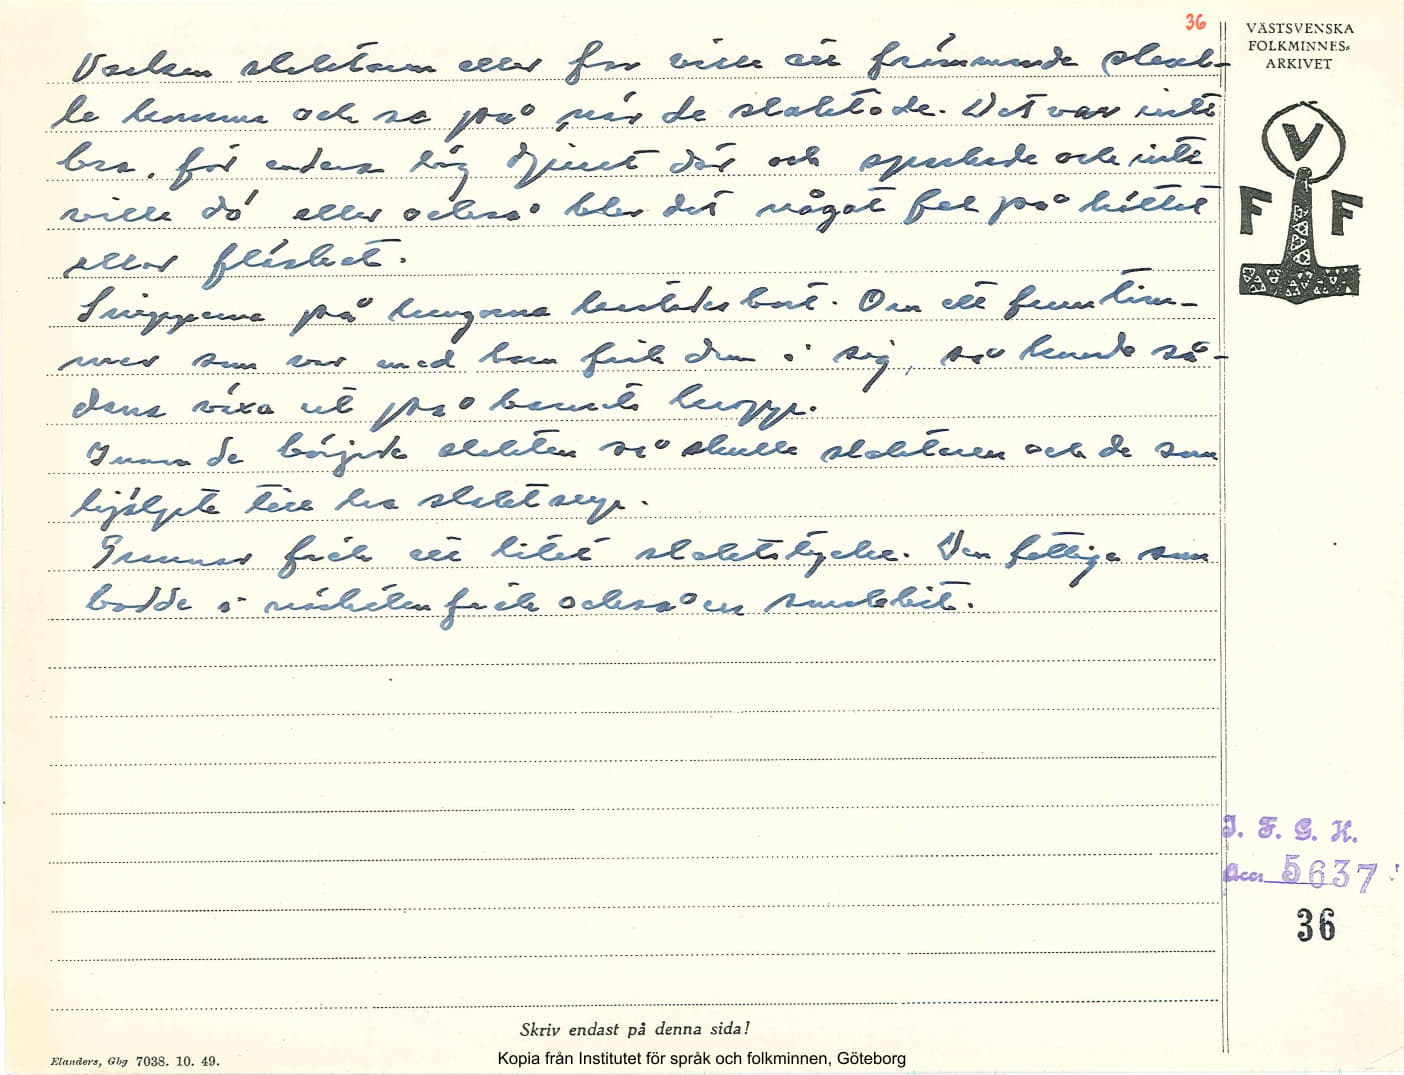 36
VÄSTSVENSKA
FOLKMINNES-
ARKIVET
V
F F
Varken slaktaren eller far ville att främmande skul-
le komma och se på när de slaktade. Det var inte
bra, för endera låg djuret där och sparkade och inte
ville dö eller också blev det något fel på köttet
eller fläsket.
Snipparna på lungorna kastades bort. Om ett fruntim-
mer som var med barn fick dem i sig, så kunde så-
dana växa ut på barnets kropp.
Innan de började slakten så skulle slaktaren och de som
hjälpte till ha slaktsup.
Grannar fick ett litet slaktstycke. Den fattiga som
bodde i närheten fick också en smakbit.
I. F. G. H.
Acc. 5637
36
Skriv endast på denna sida!
Elanders, Gbg 7038. 10. 49.
Kopia från Institutet för språk och folkminnen, Göteborg